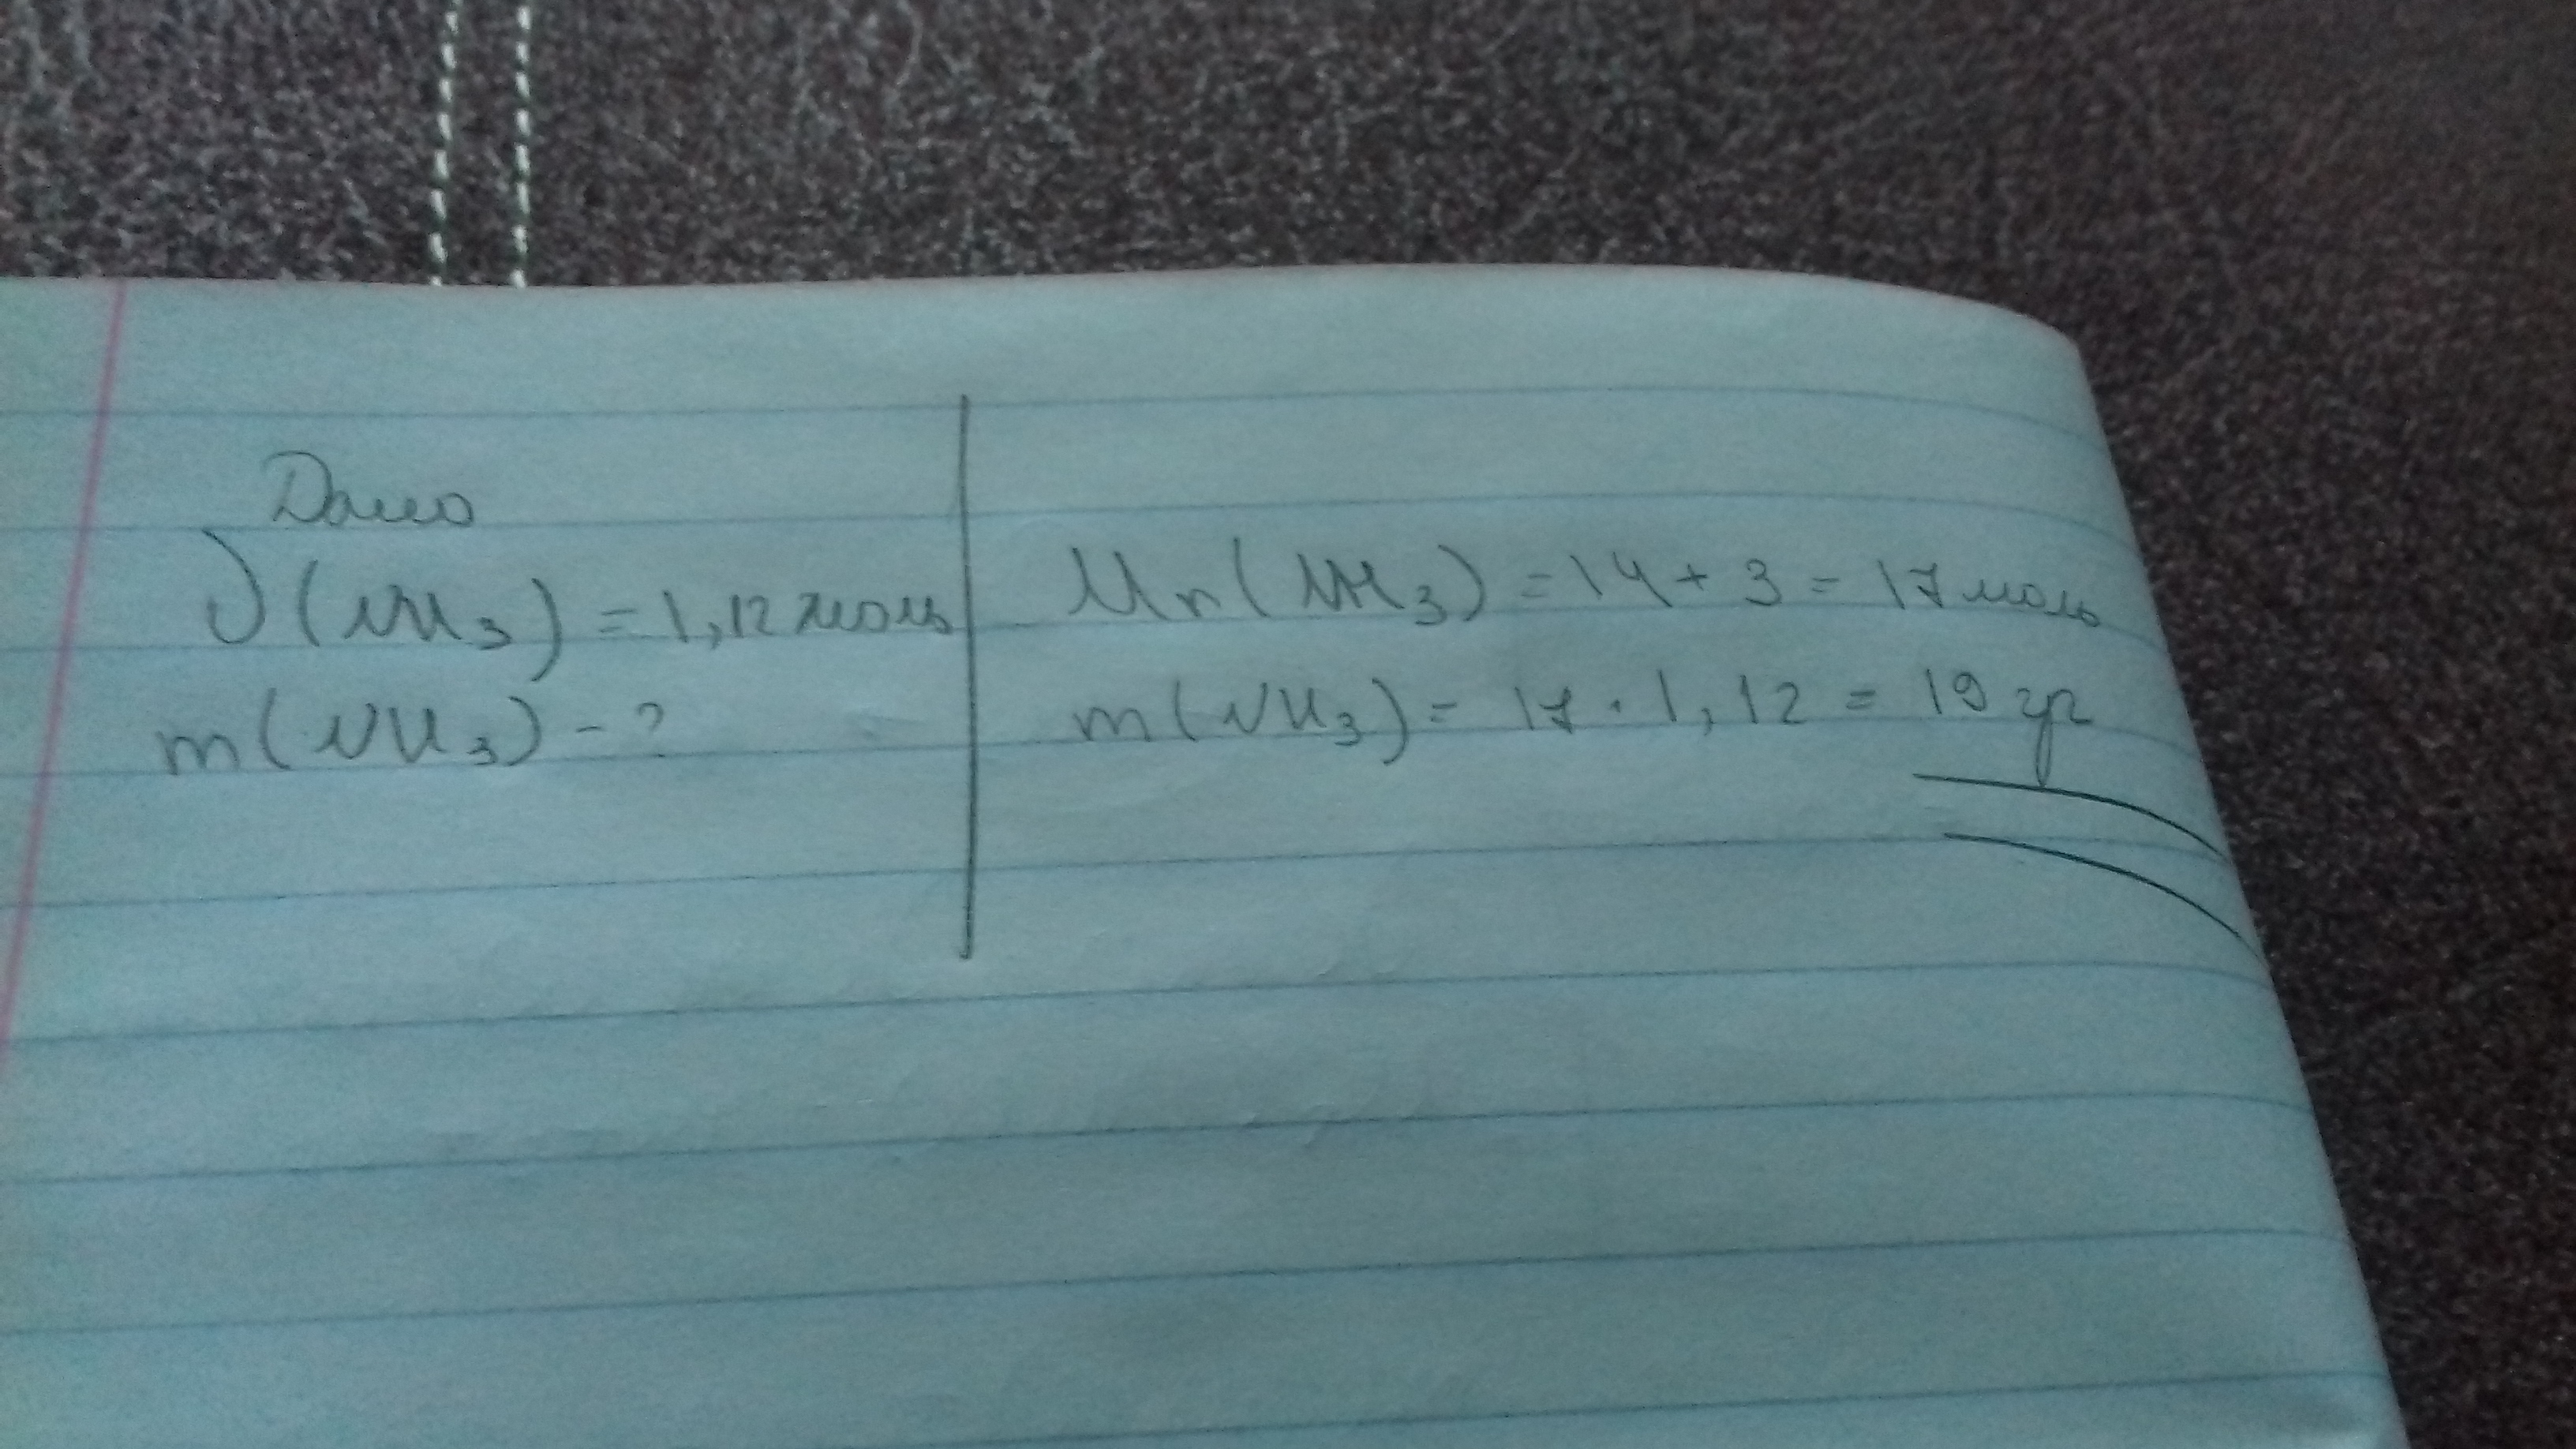 Дано
ν(NH₃) = 1,12 моль
m(NH₃) - ?
Mr(NH₃) = 14 + 3 = 17 моль
m(NH₃) = 17 · 1,12 = 19 гр